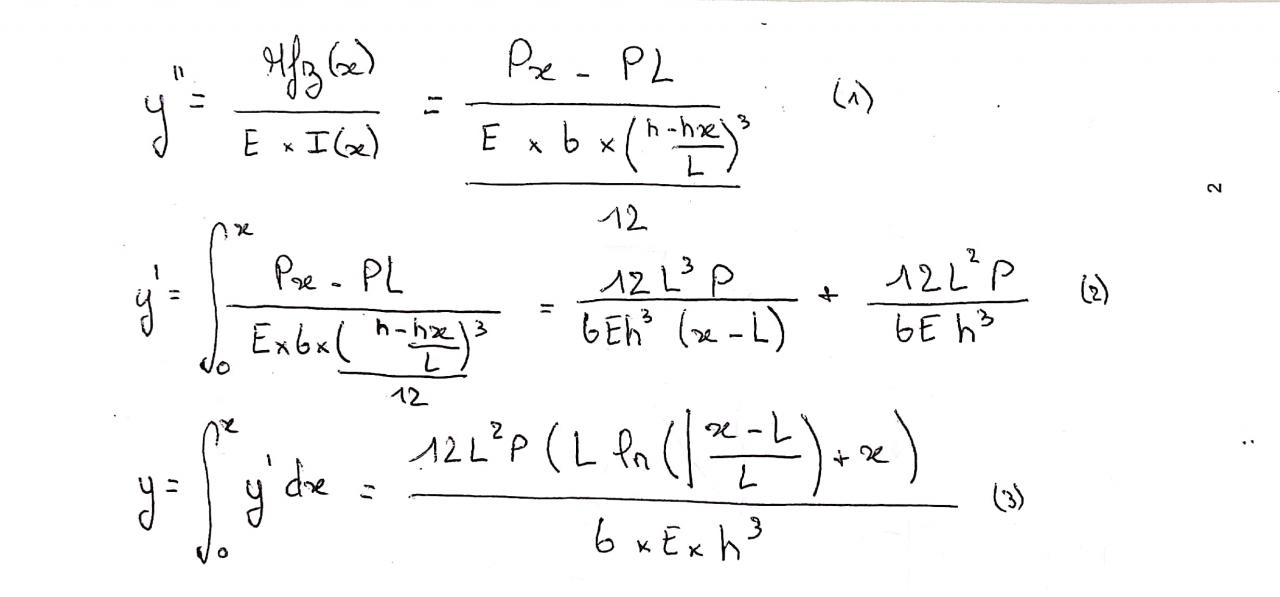 y'' = Mfz(x) / (E × I(x)) = (Px - PL) / (E × b × (h - hx/L)^3 / 12) (1)
y' = ∫_0^x (Px - PL) / (E × b × (h - hx/L)^3 / 12) = 12L^3P / (bEh^3 (x - L)) + 12L^2P / (bEh^3) (2)
y = ∫_0^x y' dx = 12L^2P (L ln(|(x - L)/L) + x) / (b × E × h^3) (3)
2